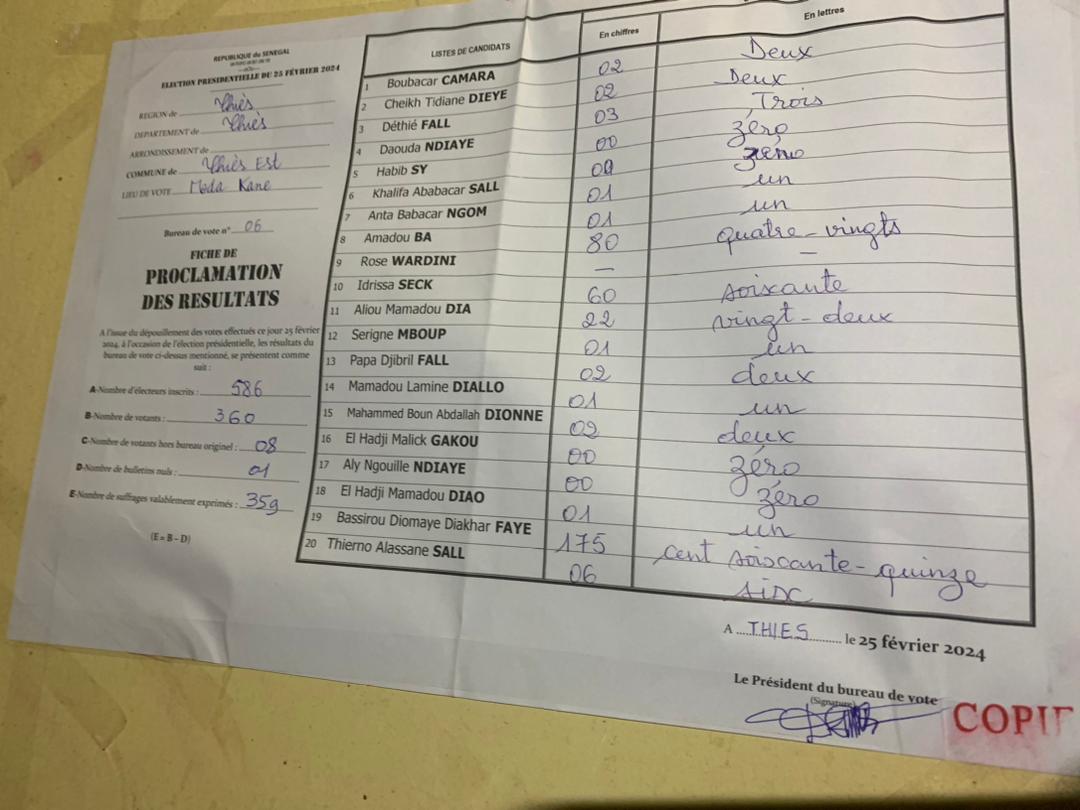 REPUBLIQUE du SENEGAL
ELECTION PRESIDENTIELLE DU 25 FÉVRIER 2024
REGION de Thiès
DEPARTEMENT de Thiès
ARRONDISSEMENT de
COMMUNE de Thiès EST
LIEU DE VOTE Moda Kane
Bureau de vote n° 06
FICHE DE
PROCLAMATION
DES RESULTATS
A l'issue du dépouillement des votes effectués ce jour 25 février
2024, à l'occasion de l'élection présidentielle, les résultats du
bureau de vote ci-dessus mentionné, se présentent comme
suit :
A-Nombre d'électeurs inscrits : 586
B-Nombre de votants : 360
C-Nombre de votants hors bureau originel : 08
D-Nombre de bulletins nuls : 01
E-Nombre de suffrages valablement exprimés : 359
(E = B – D)
LISTES DE CANDIDATS En chiffres En lettres
1 Boubacar CAMARA 02 Deux
2 Cheikh Tidiane DIEYE 02 Deux
3 Déthié FALL 03 Trois
4 Daouda NDIAYE 00 zéro
5 Habib SY 00 zéro
6 Khalifa Ababacar SALL 01 un
7 Anta Babacar NGOM 01 un
8 Amadou BA 80 quatre-vingts
9 Rose WARDINI — —
10 Idrissa SECK 60 soixante
11 Aliou Mamadou DIA 22 vingt-deux
12 Serigne MBOUP 01 un
13 Papa Djibril FALL 02 deux
14 Mamadou Lamine DIALLO 01 un
15 Mahammed Boun Abdallah DIONNE 02 deux
16 El Hadji Malick GAKOU 00 zéro
17 Aly Ngouille NDIAYE 00 zéro
18 El Hadji Mamadou DIAO 01 un
19 Bassirou Diomaye Diakhar FAYE 175 cent soixante-quinze
20 Thierno Alassane SALL 06 six
A THIES le 25 février 2024
Le Président du bureau de vote
(Signature)
COPIE